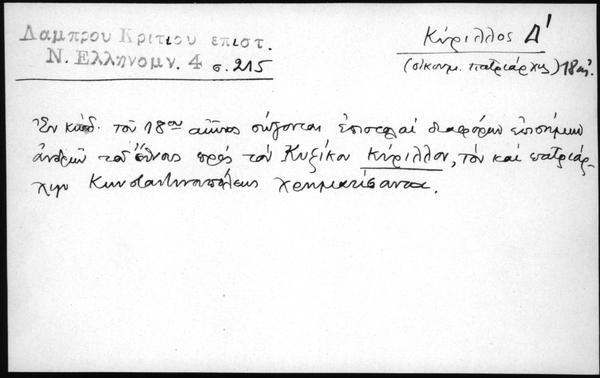 Λαμπρου Κριτιου επιστ.
Ν. Ελληνομν. 4 σ. 215
Κύριλλος Δ'
(οἰκουμ. πατριάρχης) 18 αἰ.
Ἐν κώδ. τοῦ 18ου αἰῶνος σώζονται ἐπιστολαὶ διαφόρων ἐπισήμων
ἀνδρῶν τοῦ ἔθνους πρὸς τὸν Κυζίκου Κύριλλον, τὸν καὶ πατριάρ-
χην Κωνσταντινουπόλεως χρηματίσαντα.